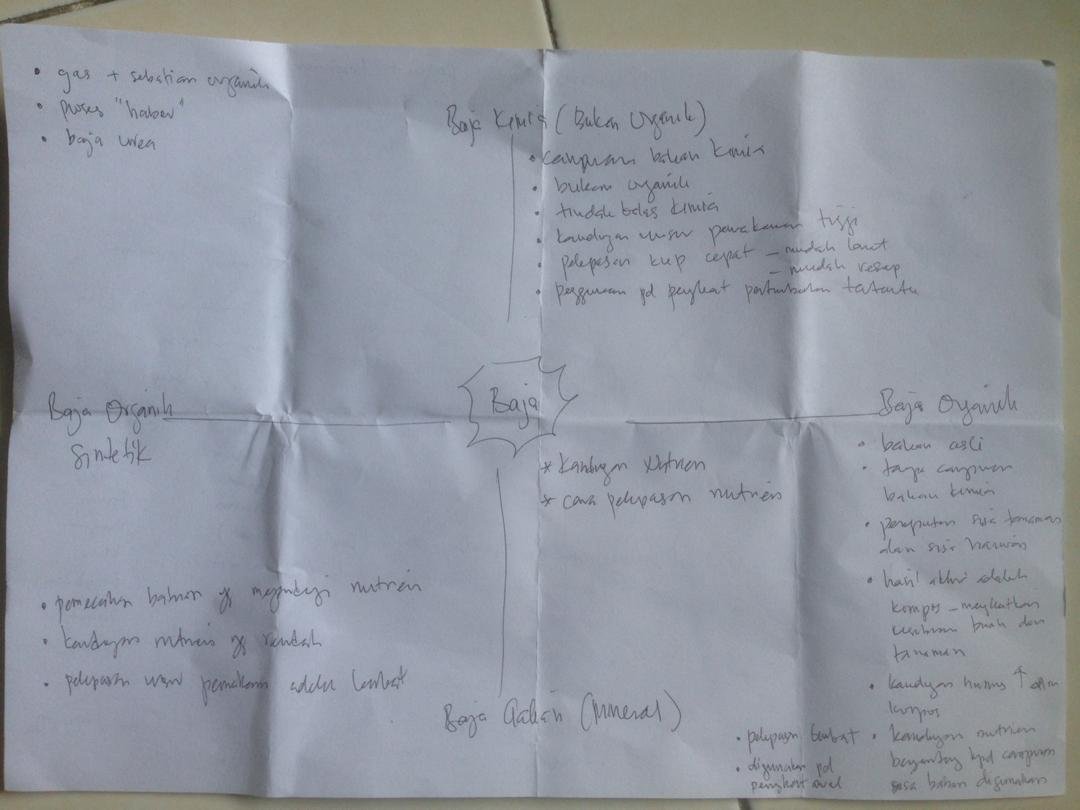 • gas + sebatian organik
• proses "haber"
• baja urea
Baja Kimia (Bukan Organik)
• campuran bahan kimia
• bukan organik
• tindak balas kimia
• kandungan unsur pemakanan tinggi
• pelepasan kup cepat – mudah larut
– mudah resap
• penggunaan pd peringkat pertumbuhan tertentu
Baja Organik
Sintetik
Baja
* Kandungan Nutrien
* cara pelepasan nutrien
Baja Organik
• bahan asli
• tanpa campuran
bahan kimia
• pereputan sisa tanaman
dan sisa haiwan
• hasil akhir adalah
kompos – meningkatkan
kesuburan buah dan
tanaman
• kandungan humus ↑ dlm
kompos
• kandungan nutrien
bergantung kpd campuran
sisa bahan digunakan
• pemecahan bahan yg mengandungi nutrien
• kandungan nutrien yg rendah
• pelepasan unsur pemakanan adalah lambat
Baja Galian (Mineral)
• pelepasan lambat
• digunakan pd
peringkat awal